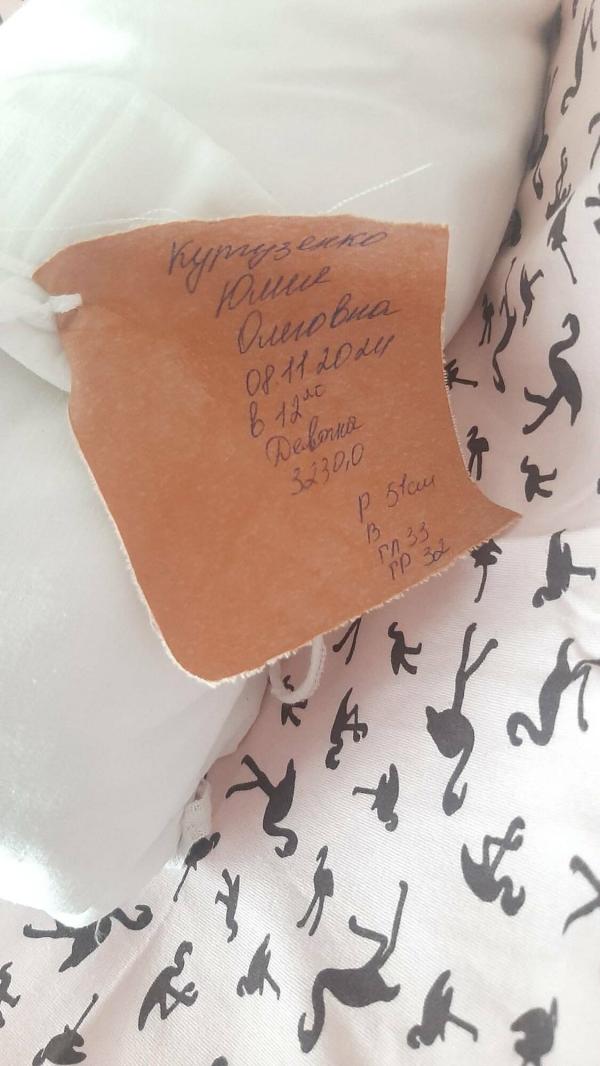 Кургузенко
Юлия
Олеговна
08.11.2024
в 12
Девочка
3230,0
Р 51см
В
ГЛ 33
ГР 32